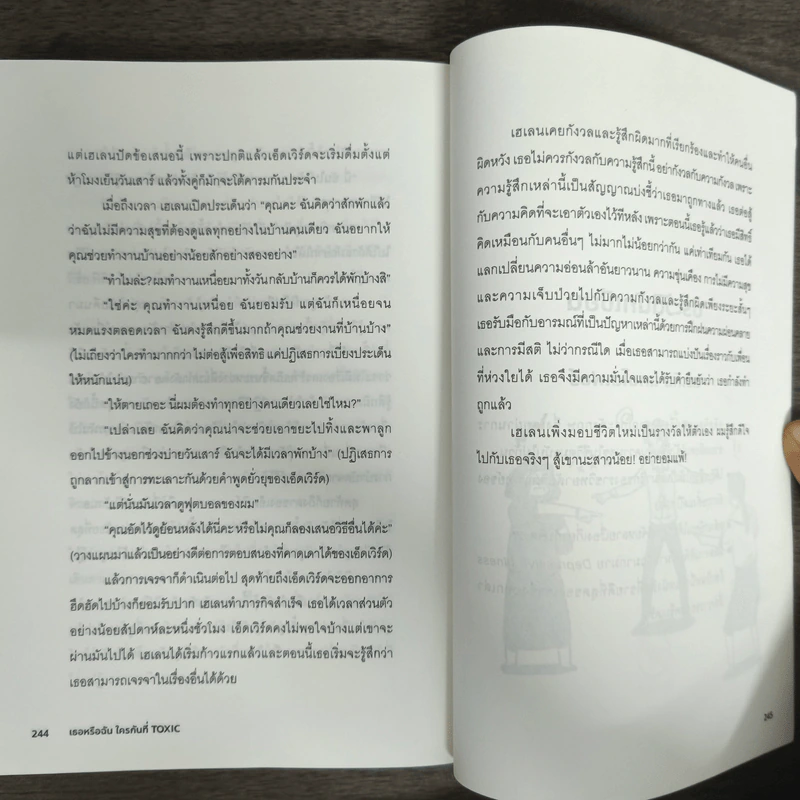 แต่เฮเลนปัดข้อเสนอนี้ เพราะปกติแล้วเอ็ดเวิร์ดจะเริ่มดื่มตั้งแต่
ห้าโมงเย็นวันเสาร์ แล้วทั้งคู่ก็มักจะโต้คารมกันประจำ
เมื่อถึงเวลา เฮเลนเปิดประเด็นว่า “คุณคะ ฉันคิดว่าสักพักแล้ว
ว่าฉันไม่มีความสุขที่ต้องดูแลทุกอย่างในบ้านคนเดียว ฉันอยากให้
คุณช่วยทำงานบ้านอย่างน้อยสักอย่างสองอย่าง”
“ทำไมล่ะ? ผมทำงานเหนื่อยมาทั้งวัน กลับบ้านก็ควรได้พักบ้างสิ”
“ใช่ค่ะ คุณทำงานเหนื่อย ฉันยอมรับ แต่ฉันก็เหนื่อยจน
หมดแรงตลอดเวลา ฉันคงรู้สึกดีขึ้นมากถ้าคุณช่วยงานที่บ้านบ้าง”
(ไม่เถียงว่าใครทำมากกว่า ไม่ต่อสู้เพื่อสิทธิ แค่ปฏิเสธการเบี่ยงประเด็น
ให้หนักแน่น)
“ให้ตายเถอะ นี่ผมต้องทำทุกอย่างคนเดียวเลยใช่ไหม?”
“เปล่าเลย ฉันคิดว่าคุณน่าจะช่วยเอาขยะไปทิ้งและพาลูก
ออกไปข้างนอกช่วงบ่ายวันเสาร์ ฉันจะได้มีเวลาพักบ้าง” (ปฏิเสธการ
ถูกลากเข้าสู่การทะเลาะกันด้วยคำพูดยั่วยุของเอ็ดเวิร์ด)
“แต่นั่นมันเวลาดูฟุตบอลของผม”
“คุณอัดไว้ดูย้อนหลังได้นี่คะ หรือไม่คุณก็ลองเสนอวิธีอื่นได้ค่ะ”
(วางแผนมาแล้วเป็นอย่างดีต่อการตอบสนองที่คาดเดาได้ของเอ็ดเวิร์ด)
แล้วการเจรจาก็ดำเนินต่อไป สุดท้ายถึงเอ็ดเวิร์ดจะออกอาการ
ฮึดฮัดไปบ้างก็ยอมรับปาก เฮเลนทำภารกิจสำเร็จ เธอได้เวลาส่วนตัว
อย่างน้อยสัปดาห์ละหนึ่งชั่วโมง เอ็ดเวิร์ดคงไม่พอใจบ้างแต่เขาจะ
ผ่านมันไปได้ เฮเลนได้เริ่มก้าวแรกแล้วและตอนนี้เธอเริ่มจะรู้สึกว่า
เธอสามารถเจรจาในเรื่องอื่นได้ด้วย
244 เธอหรือฉัน ใครกันที่ TOXIC
เฮเลนเคยกังวลและรู้สึกผิดมากที่เรียกร้องและทำให้คนอื่น
ผิดหวัง เธอไม่ควรกังวลกับความรู้สึกนี้ อย่ากังวลกับความกังวล เพราะ
ความรู้สึกเหล่านี้เป็นสัญญาณบ่งชี้ว่าเธอมาถูกทางแล้ว เธอต่อสู้
กับความคิดที่จะเอาตัวเองไว้ทีหลัง เพราะตอนนี้เธอรู้แล้วว่าเธอมีสิทธิ์
คิดเหมือนกับคนอื่นๆ ไม่มากไม่น้อยกว่ากัน แต่เท่าเทียมกัน เธอได้
แลกเปลี่ยนความอ่อนล้าอันยาวนาน ความขุ่นเคือง การไม่มีความสุข
และความเจ็บป่วยไปกับความกังวลและรู้สึกผิดเพียงระยะสั้นๆ
เธอรับมือกับอารมณ์ที่เป็นปัญหาเหล่านี้ด้วยการฝึกฝนความผ่อนคลาย
และการมีสติ ไม่ว่ากรณีใด เมื่อเธอสามารถแบ่งปันเรื่องราวกับเพื่อน
ที่ห่วงใยได้ เธอจึงมีความมั่นใจและได้รับคำยืนยันว่า เธอกำลังทำ
ถูกแล้ว
เฮเลนเพิ่งมอบชีวิตใหม่เป็นรางวัลให้ตัวเอง ผมรู้สึกดีใจ
ไปกับเธอจริงๆ สู้เขานะสาวน้อย! อย่ายอมแพ้!
245